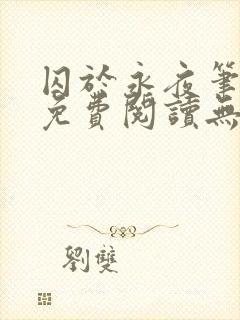 囚於永夜筆
免費閱讀無
劉雙